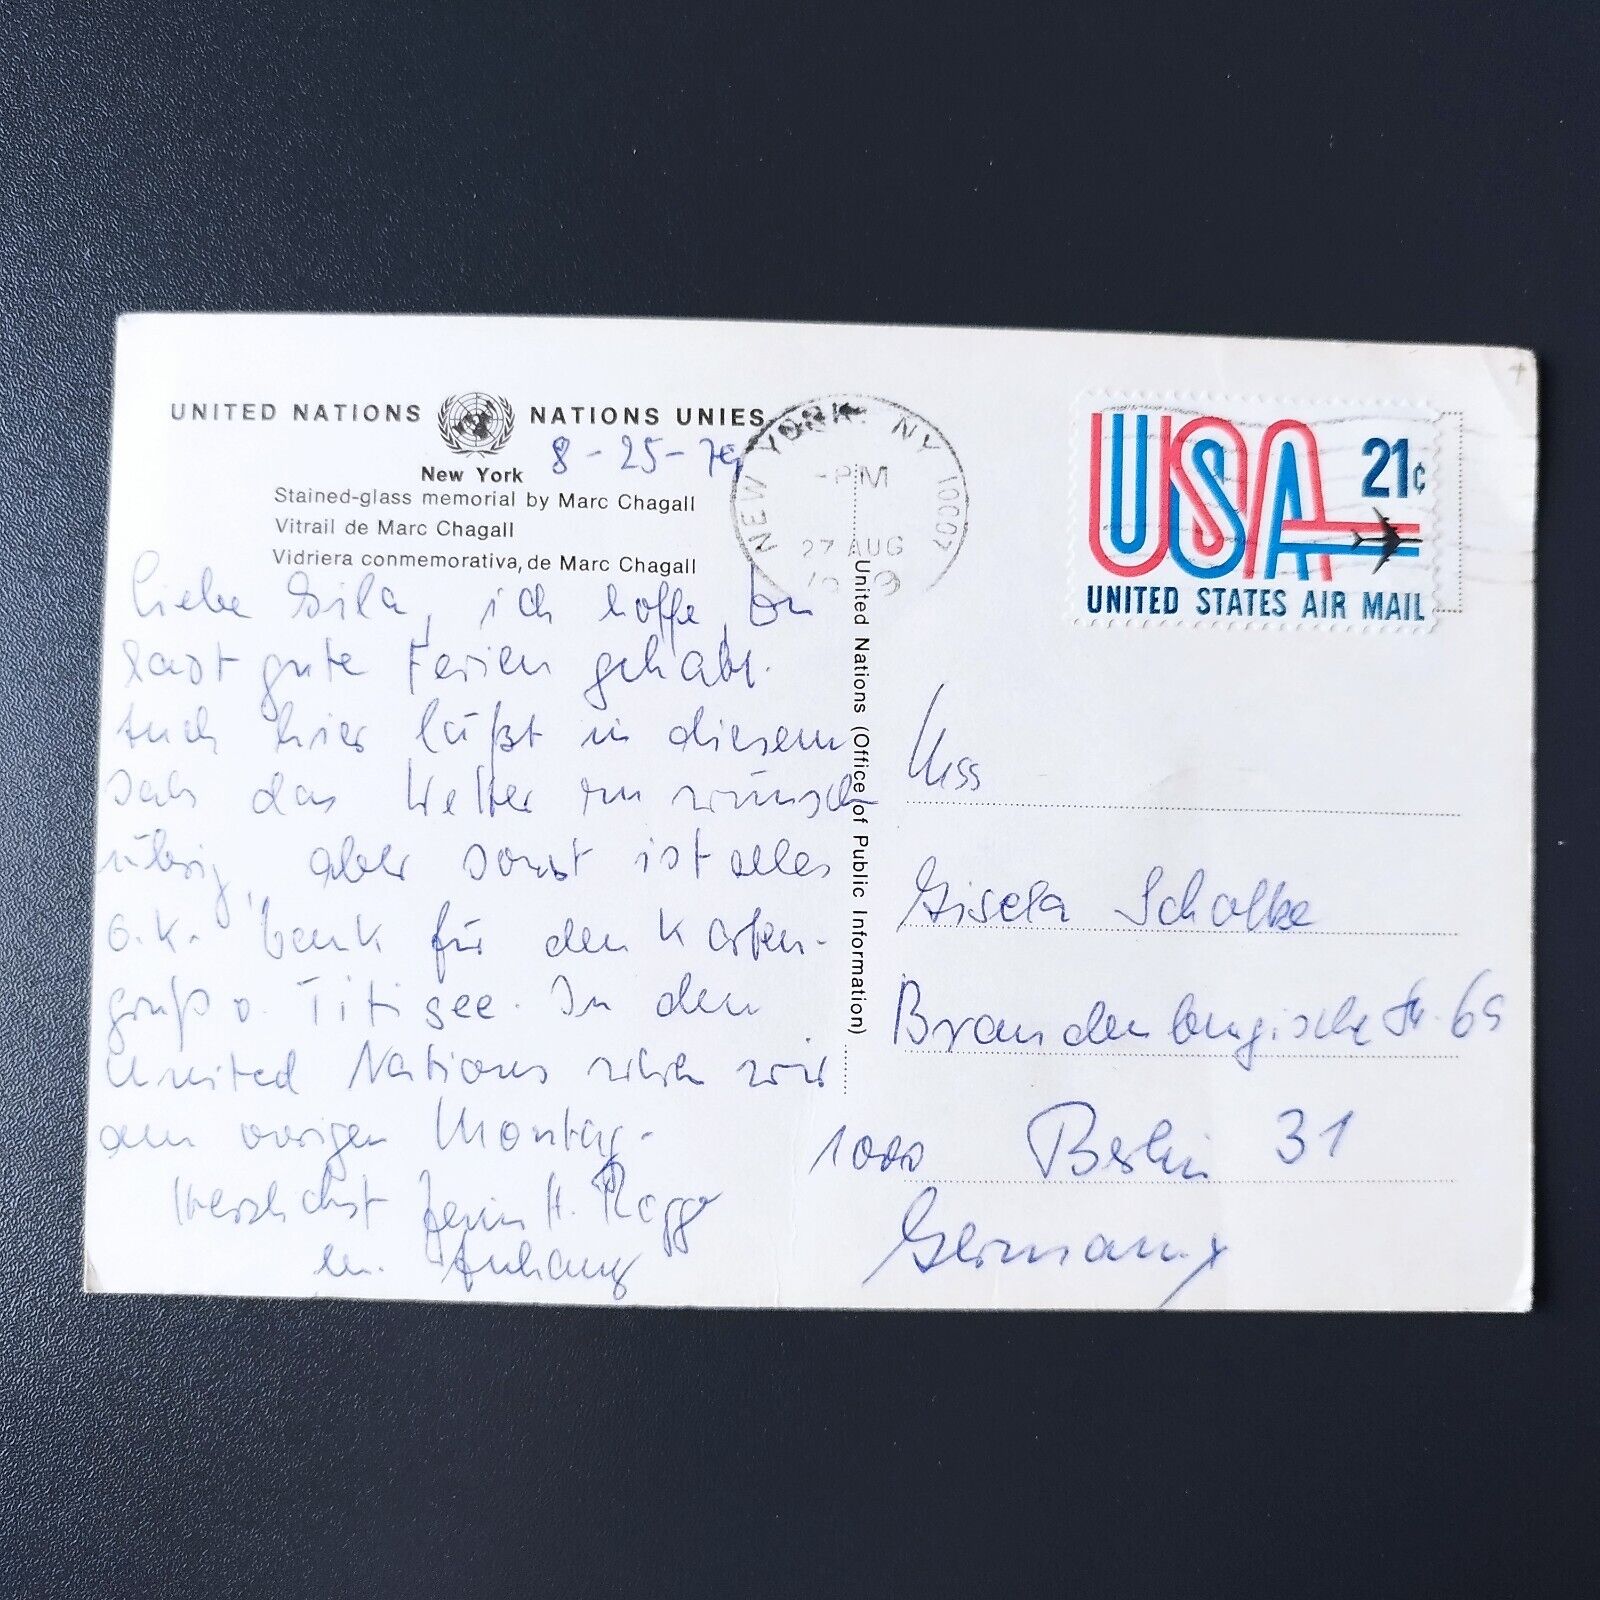 UNITED NATIONS NATIONS UNIES
8-25-79
New York
Stained-glass memorial by Marc Chagall
Vitrail de Marc Chagall
Vidriera conmemorativa, de Marc Chagall
Liebe Gila, ich hoffe, Du
hast gute Ferien gehabt.
Auch hier läßt in diesem
Jahr das Wetter zu wünsche
übrig, aber sonst ist alles
o.k. Dank für den Karten-
gruß v. Titisee. In den
United Nations waren wir
am vorigen Montag.
Herzlichst H.
m. Anhang
United Nations (Office of Public Information)
NEW YORK, NY 10007
-PM
27 AUG
USA 21¢
UNITED STATES AIR MAIL
Miss
Gisela Schalke
Brandenburgische Str. 69
1000 Berlin 31
Germany